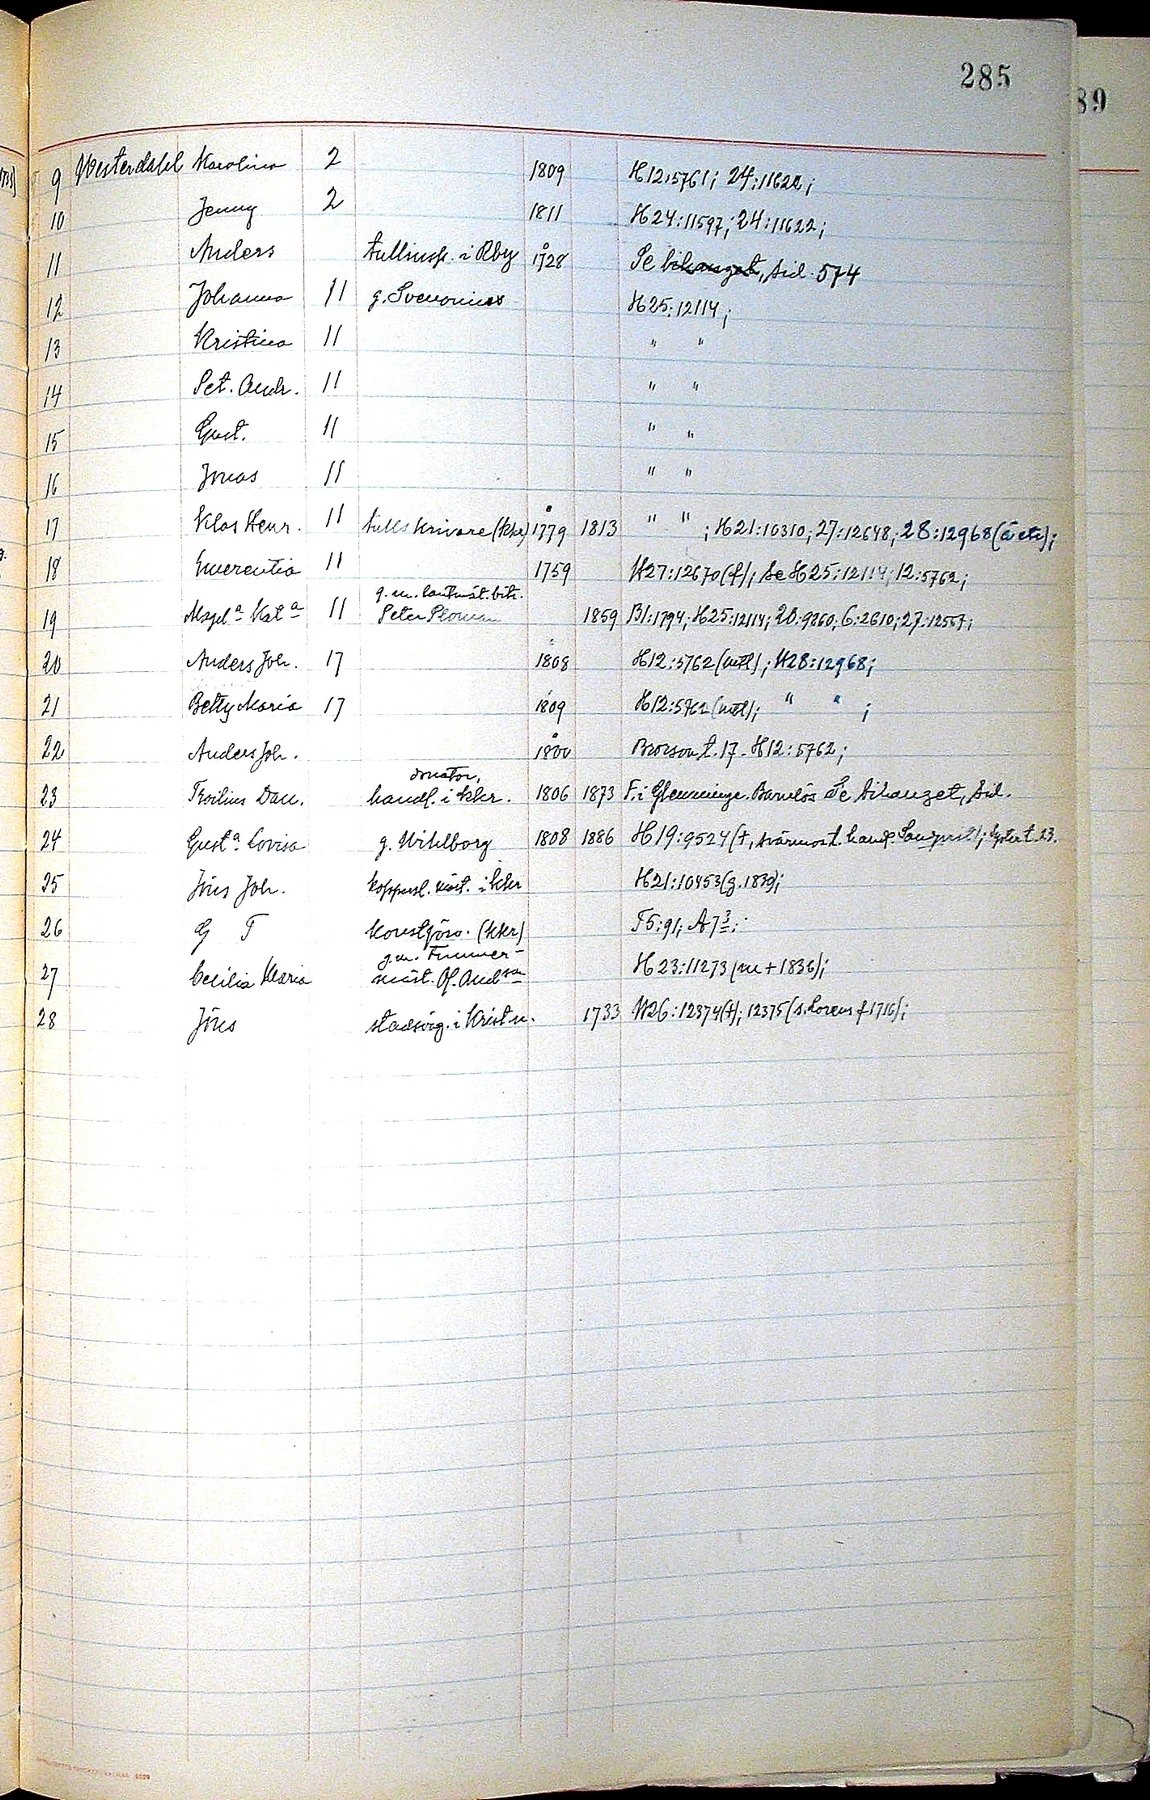 285
89
9 Westerdahl Karolina 2 1809 H12:5761; 24:11622;
10 Jenny 2 1811 H24:11597; 24:11622;
11 Anders tullinsp. i Rby 1728 Se bihanget, sid. 574
12 Johanna 11 g. Svenonius H25:12114;
13 Kristina 11 " "
14 Pet. Andr. 11 " "
15 Gust. 11 " "
16 Jonas 11 " "
17 Klas Henr. 11 tullskrivare (kkr) 1779 1813 " " ; H21:10310; 27:12648; 28:12968
18 Emerentia 11 1759 H27:12670 (f); se H25:12114; 12:5762;
g. m. lantmät.
19 Magda Kata 11 Peter 1859 B1:1794; H25:12114; 20:9860; 6:2610; 27:12567;
20 Anders Joh. 17 1808 H12:5762 ; H28:12968;
21 Betty Maria 17 1809 H12:5762 ; " " ;
22 Anders Joh. 1800 Brorson t. 17. H12:5762;
donator,
23 Troilius Dan. handl. i kkr. 1806 1873 F. i Glemminge. Barnlös Se bihanget, sid.
24 Gusta Lovisa g. Wihlborg 1808 1886 H19:9524 (†, svärmor t. ; Syster t. 23.
25 Jöns Joh. kopparsl. mäst. i kkr H21:10453 (g. 1839);
26 G F konstförv. (kkr) F5:91; A73;
g. m. Timmer-
27 Cecilia Maria mäst. Of. Andson H23:11273 (m † 1836);
28 Jöns stadsvag. i Krist n. 1733 H26:12374 (†); 12375 (s. Lorens f 1716);